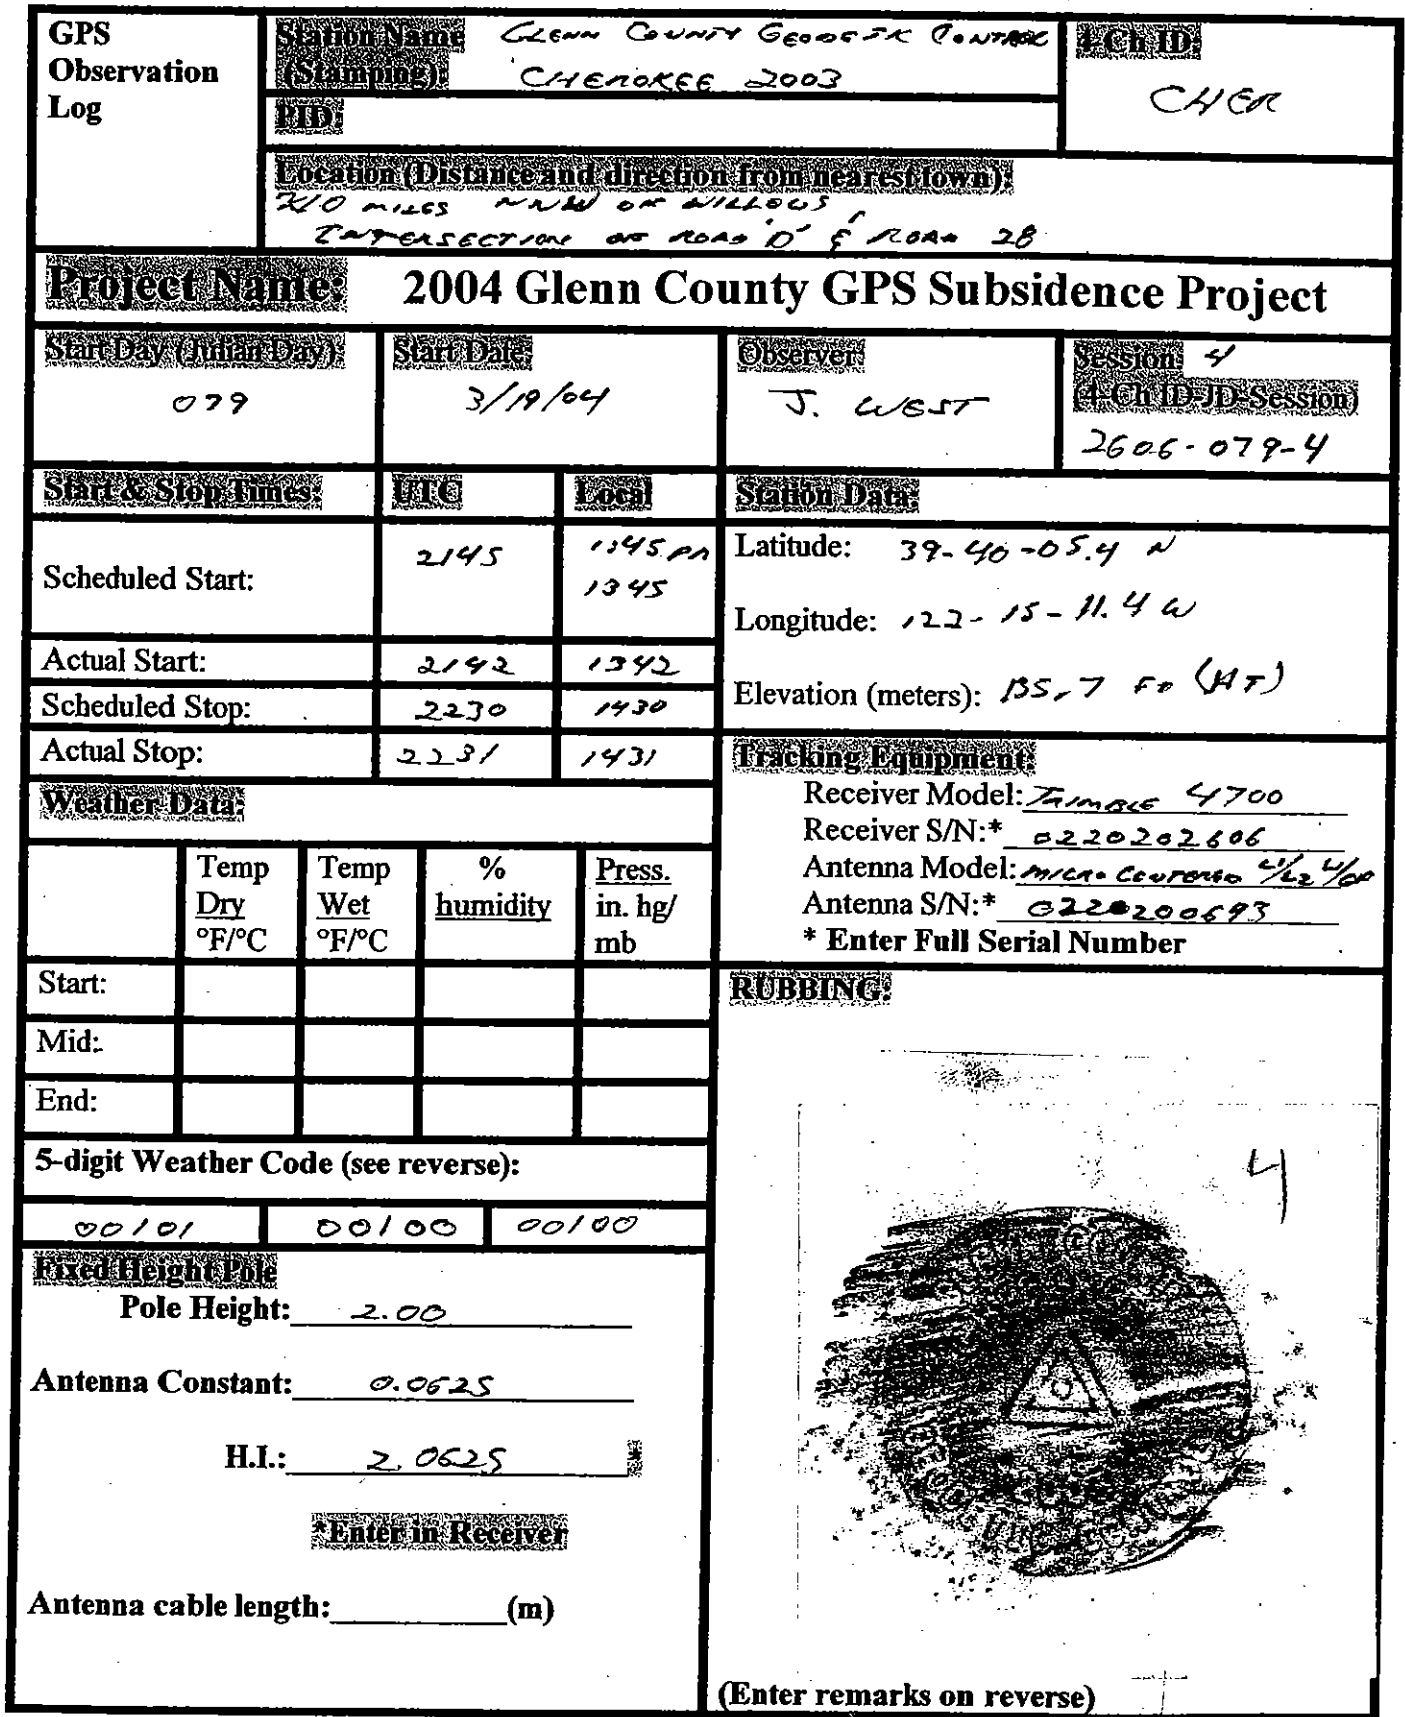 GPS Observation Log
Station Name (Stamping): GLENN COUNTY GEODETIC CONTROL
CHEROKEE 2003
4-Ch ID:
CHER
PID:
Location (Distance and direction from nearest town):
MILES NNW OF WILLOWS,
INTERSECTION OF ROAD 'D' & ROAD 28
Project Name: 2004 Glenn County GPS Subsidence Project
Start Day (Julian Day):
079
Start Date:
3/19/04
Observer:
J. WEST
Session: 4
(4-Ch ID-JD-Session)
2606-079-4
Start & Stop Times: UTC Local
Scheduled Start: 2145 1345 PM
1345
Actual Start: 2142 1342
Scheduled Stop: 2230 1430
Actual Stop: 2231 1431
Station Data:
Latitude: 39-40-05.4 N
Longitude: 122-15-11.4 W
Elevation (meters): (HT)
Tracking Equipment:
Receiver Model: TRIMBLE 4700
Receiver S/N:* 0220202606
Antenna Model: MICRO CENTERED L1/L2 W/GP
Antenna S/N:* 0220200693
* Enter Full Serial Number
Weather Data:
Temp Dry °F/°C
Temp Wet °F/°C
% humidity
Press. in. hg/ mb
Start:
Mid:
End:
5-digit Weather Code (see reverse):
00101 00100 00100
Fixed Height Pole
Pole Height: 2.00
Antenna Constant: 0.0625
H.I.: 2.0625 *
*Enter in Receiver
Antenna cable length: (m)
RUBBING:
4
(Enter remarks on reverse)